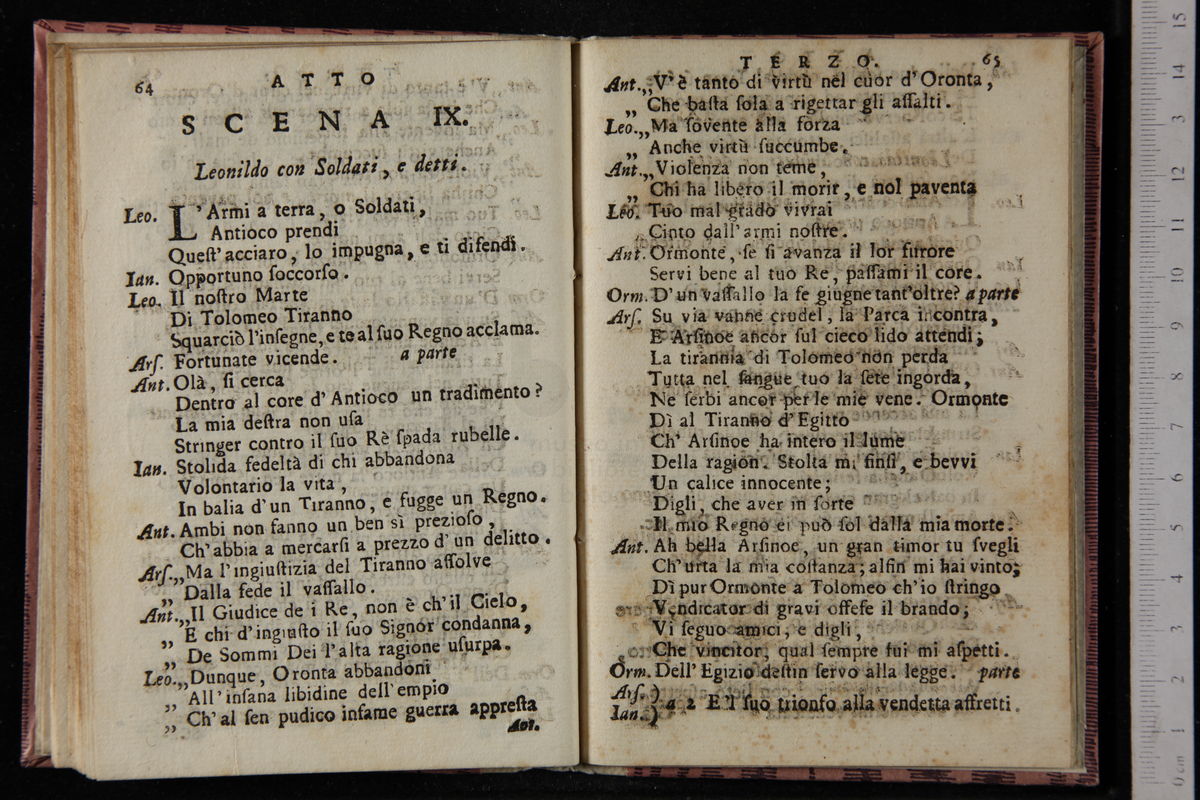 64 ATTO
SCENA IX.
Leonildo con Soldati, e detti.
Leo. L'Armi a terra, o Soldati,
Antioco prendi
Queſt' acciaro, lo impugna, e ti difendi.
Ian. Opportuno ſoccorſo.
Leo. Il noſtro Marte
Di Tolomeo Tiranno
Squarciò l'inſegne, e te al ſuo Regno acclama.
Arſ. Fortunate vicende. a parte
Ant. Olà, ſi cerca
Dentro al core d'Antioco un tradimento?
La mia deſtra non uſa
Stringer contro il ſuo Rè ſpada rubelle.
Ian. Stolida fedeltà di chi abbandona
Volontario la vita,
In balia d'un Tiranno, e fugge un Regno.
Ant. Ambi non fanno un ben sì prezioſo,
Ch'abbia a mercarſi a prezzo d'un delitto.
Arſ. „Ma l'ingiuſtizia del Tiranno aſſolve
„ Dalla fede il vaſſallo.
Ant. „Il Giudice de i Re, non è ch'il Cielo,
„ E chi d'ingiuſto il ſuo Signor condanna,
„ De Sommi Dei l'alta ragione uſurpa.
Leo. „Dunque, Oronta abbandoni
„ All' inſana libidine dell' empio
„ Ch'al ſen pudico infame guerra appreſta
Ant.
TERZO. 65
Ant. „V'è tanto di virtù nel cuor d'Oronta,
„ Che baſta ſola a rigettar gli aſſalti.
Leo. „Ma ſovente alla forza
„ Anche virtù ſuccumbe.
Ant. „Violenza non teme,
„ Chi ha libero il morir, e nol paventa
Leo. Tuo mal grado vivrai
Cinto dall' armi noſtre.
Ant. Ormonte, ſe ſi avanza il lor furore
Servi bene al tuo Re, paſſami il core.
Orm. D'un vaſſallo la fe giugne tant'oltre? a parte
Arſ. Su via vanne crudel, la Parca incontra,
E Arſinoe ancor ſul cieco lido attendi;
La tirannia di Tolomeo non perda
Tutta nel ſangue tuo la ſete ingorda,
Ne ſerbi ancor per le mie vene. Ormonte
Dì al Tiranno d'Egitto
Ch' Arſinoe ha intero il lume
Della ragion. Stolta mi finſi, e bevvi
Un calice innocente;
Digli, che aver in ſorte
Il mio Regno ei può ſol dalla mia morte.
Ant. Ah bella Arſinoe, un gran timor tu ſvegli
Ch'urta la mia coſtanza; alfin mi hai vinto;
Dì pur Ormonte a Tolomeo ch'io ſtringo
Vendicator di gravi offeſe il brando;
Vi ſeguo amici, e digli,
Che vincitor, qual ſempre fui mi aſpetti.
Orm. Dell' Egizio deſtin ſervo alla legge. parte
Arſ. )
Ian. ) a 2 E'l ſuo trionfo alla vendetta affretti.